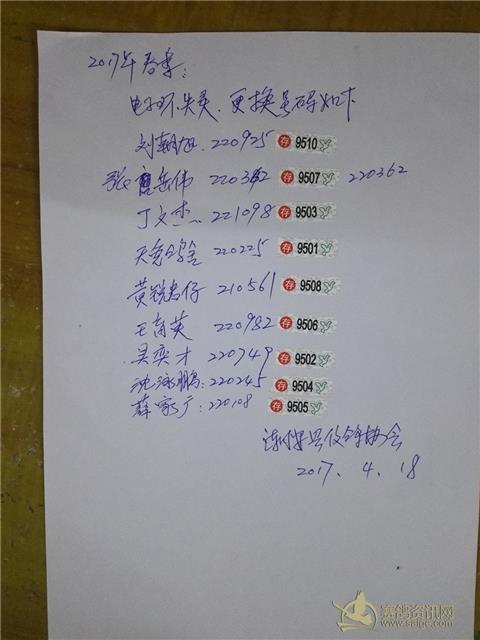 2017年春季:
电子环失灵.更换号码如下
刘朝旭.220925 存 9510
张岳伟 220362 存 9507 220362
丁文杰 221098 存 9503
天奔鸽舍 220225 存 9501
黄锐君仔 210561 存 9508
王育英 220982 存 9506
吴奕才 220749 存 9502
沈泳鹏:220245 存 9504
薛家广:220108 存 9505
县信鸽协会
2017.4.18
赛鸽资讯网
www.saige.com